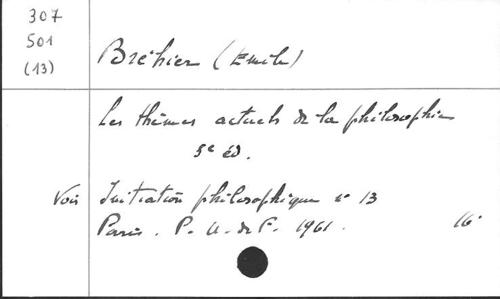 307
501
(13)
Bréhier (Emile)
Les thèmes actuels de la philosophie
5e éd.
Voir Initiation philosophique n° 13
Paris. P. U. de F. 1961. 16°